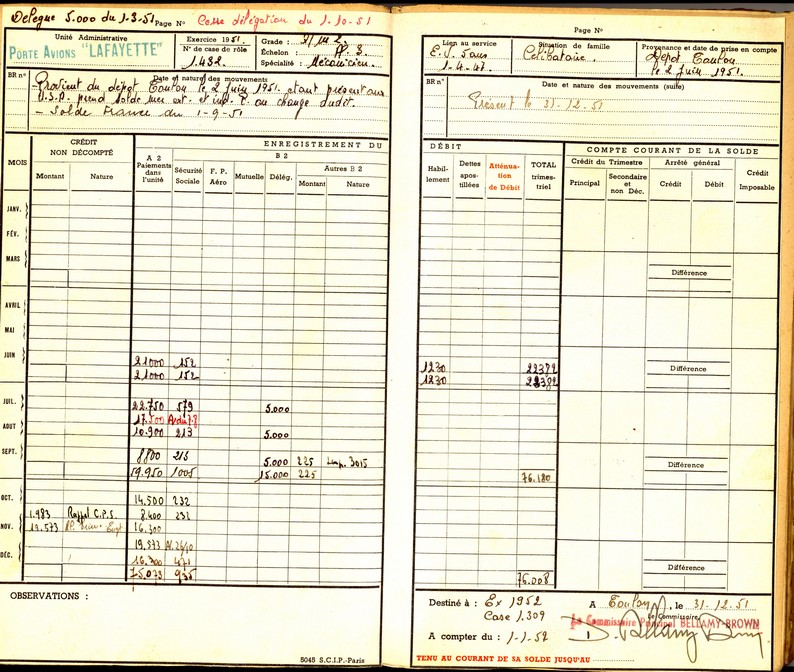 Délègue 5.000 du 1-3-51 Page N° Cesse délégation du 1-10-51
Unité Administrative
PORTE AVIONS "LAFAYETTE"
Exercice 1951.
N° de case de rôle
1.432.
Grade :
Échelon :
Spécialité : Mécanicien.
BR n°
Date et nature des mouvements
Provient du dépôt Toulon le 2 Juin 1951. étant présent aux
U.S.A. prend solde mer ext. et ind. au change dudit.
- Solde France du 1-9-51
MOIS
CRÉDIT
NON DÉCOMPTÉ
Montant
Nature
ENREGISTREMENT DU
B 2
A 2
Paiements
dans
l'unité
Sécurité
Sociale
F. P.
Aéro
Mutuelle
Délég.
Autres B 2
Montant
Nature
JANV.
FÉV.
MARS
AVRIL
MAI
JUIN
21000 152
21000 152
JUIL.
22.750 579 5.000
17.500
AOUT
10.900 213 5.000
SEPT.
8800 213 5.000 225 3015
19.950 1005 15.000 225
OCT.
14.500 232
1.983 Rappel C.P.S. 8.400 232
NOV.
16.300
19.573
DÉC.
16.300 471
75.073 935
OBSERVATIONS :
5045 S.C.I.P.-Paris
Page N°
Lien au service
1-4-47.
Situation de famille
Célibataire.
Provenance et date de prise en compte
Dépôt Toulon
le 2 Juin 1951.
BR n°
Date et nature des mouvements (suite)
Présent le 31-12-51
DÉBIT
Habil-
lement
Dettes
apos-
tillées
Atténua-
tion
de Débit
TOTAL
trimes-
triel
COMPTE COURANT DE LA SOLDE
Crédit du Trimestre
Principal
Secondaire
et
non Déc.
Arrêté général
Crédit
Débit
Crédit
Imposable
Différence
1230 22382
Différence
1230 22382
Différence
76.180
Différence
76.008
Destiné à : Ex 1952
Case 1.309
A compter du : 1-1-52
A Toulon, le 31-12-51
Le Commissaire,
Le Commissaire Principal BELLAMY-BROWN
TENU AU COURANT DE SA SOLDE JUSQU'AU